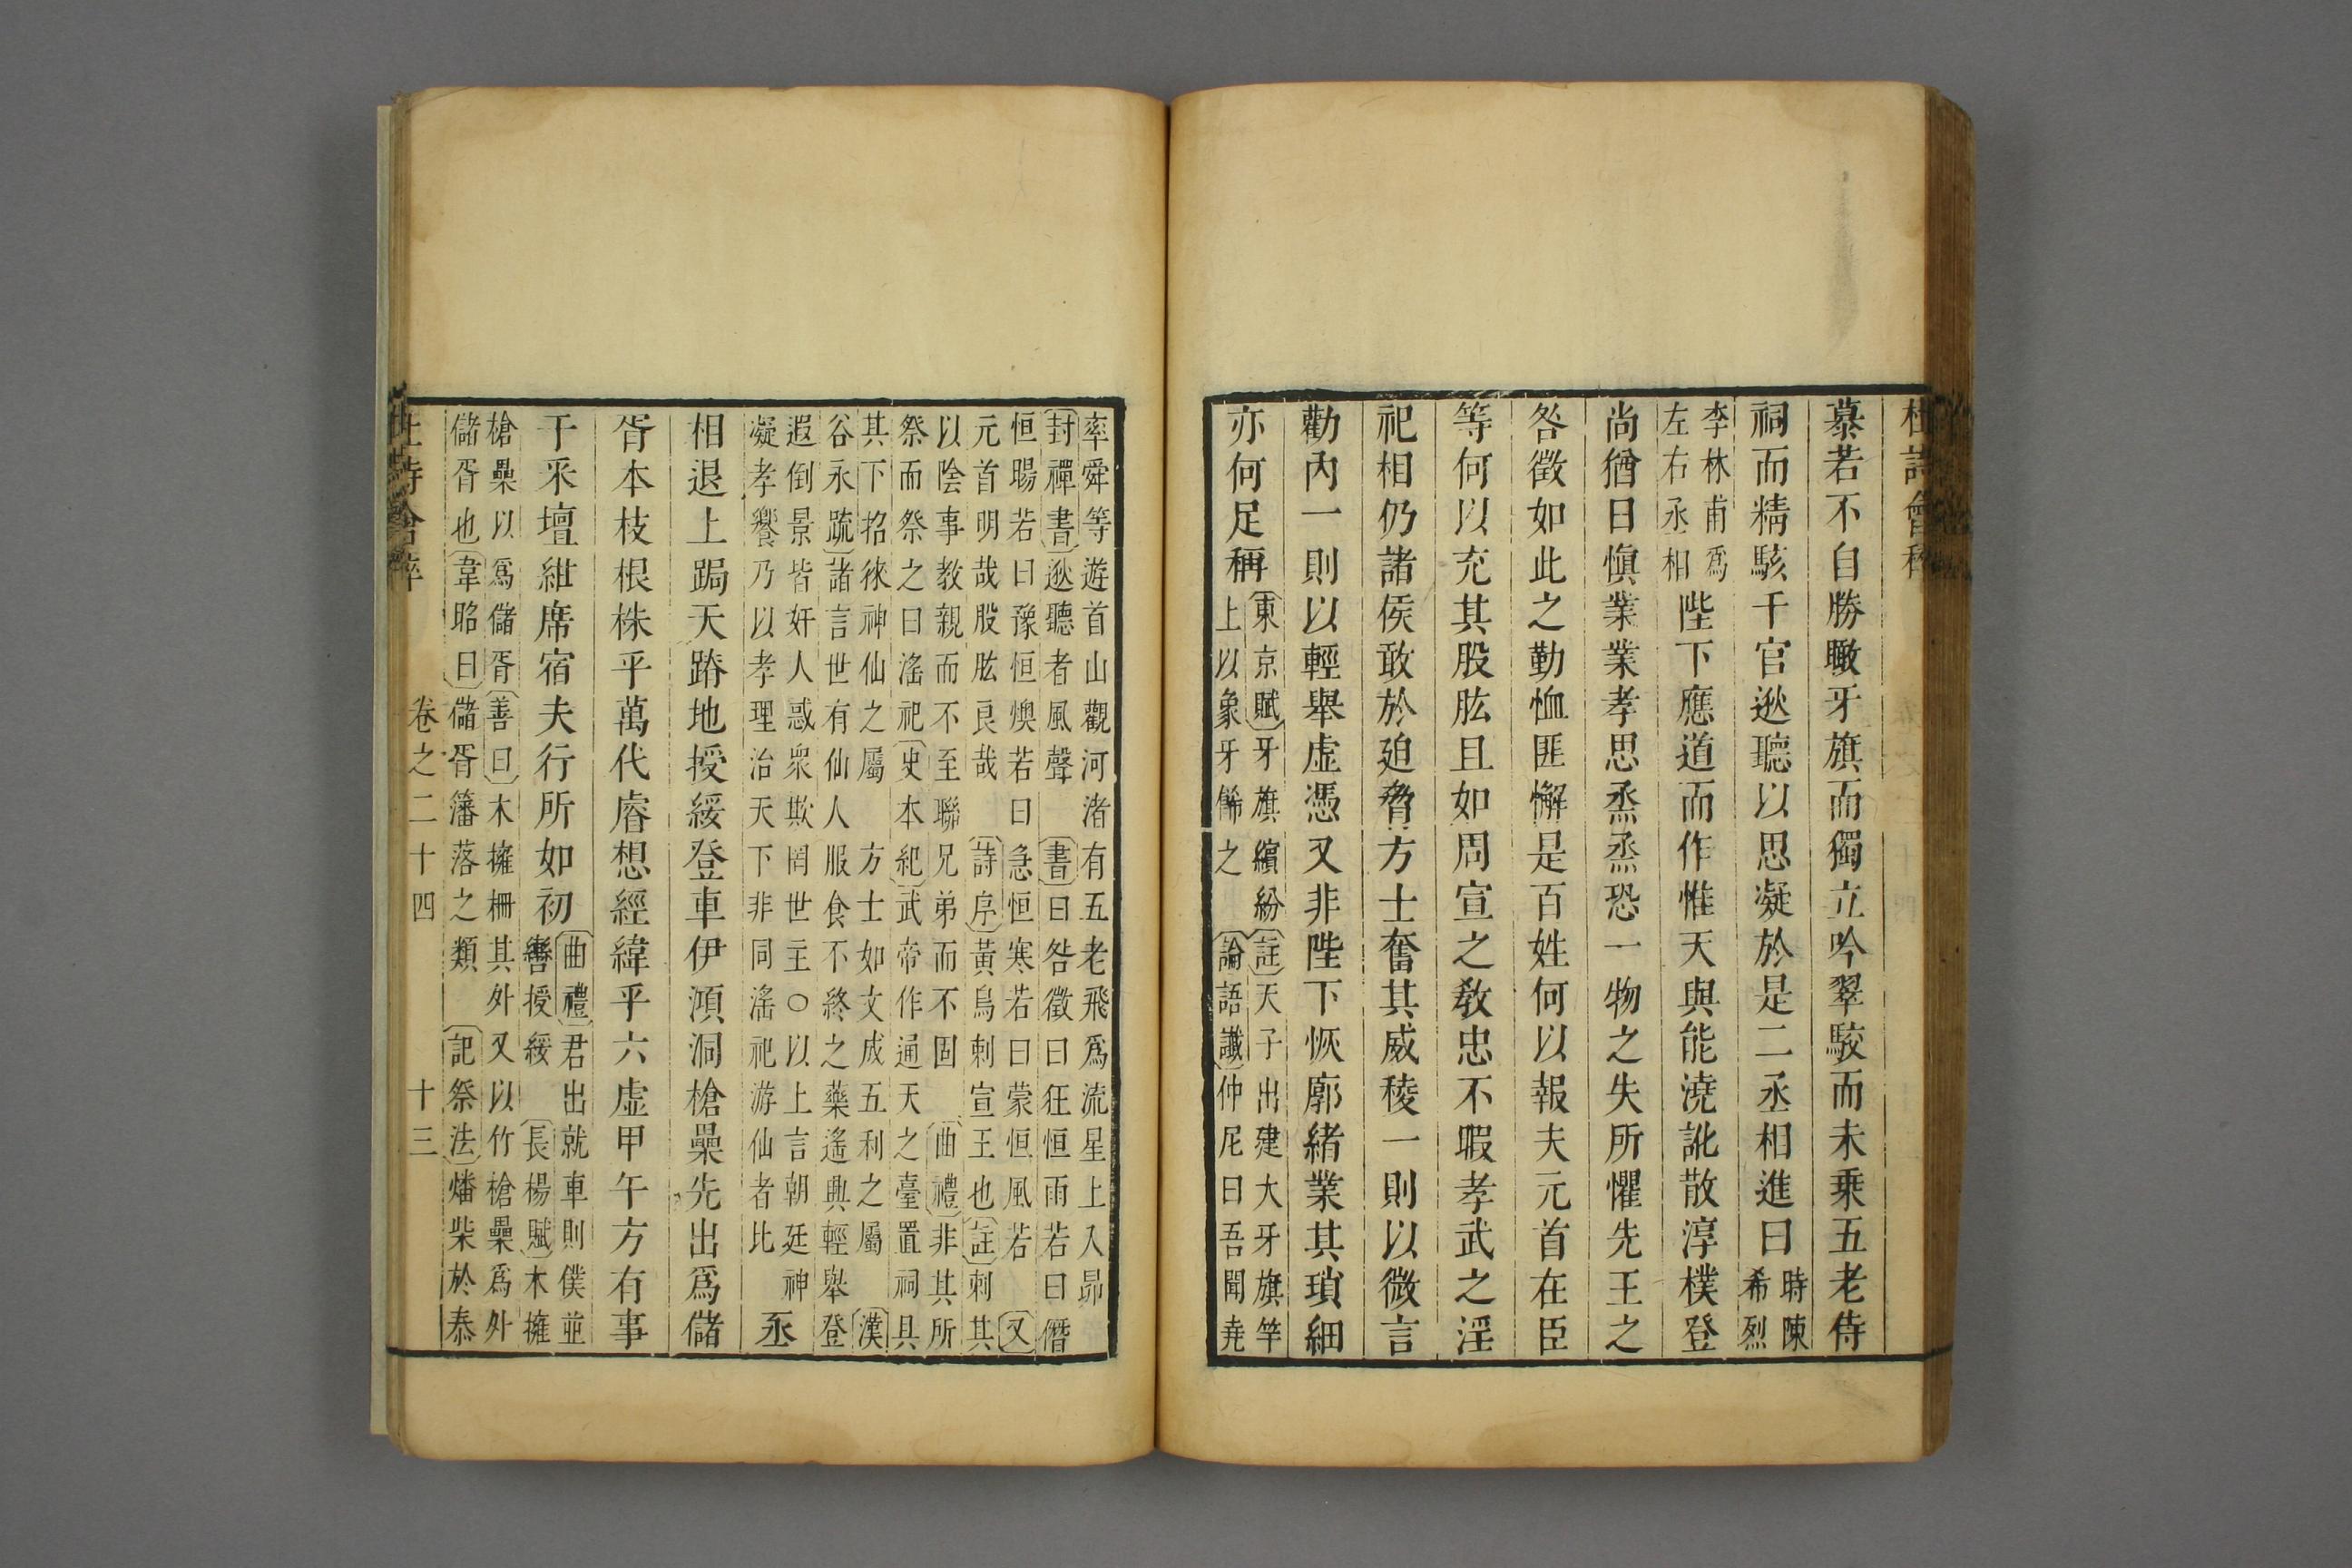 杜詩會稡
慕若不自勝瞰牙旗而獨立吟翠駮而未乗五老侍
祠而精駭千官逖聽以思凝於是二丞相進曰時陳希烈
李林甫爲左右丞相陛下應道而作惟天與能澆訛散淳樸登
尚猶日愼業業孝思烝烝恐一物之失所懼先王之
咎徵如此之勤恤匪懈是百姓何以報夫元首在臣
等何以充其股肱且如周宣之敎忠不暇孝武之淫
祀相仍諸侯敢於廹脅方士奮其威稜一則以微言
勸內一則以輕舉虛憑又非陛下恢廓緒業其瑣細
亦何足稱東京賦牙旗繽紛註天子出建大牙旗竿
上以象牙餙之　論語讖仲尼曰吾聞堯
率舜等遊首山觀河渚有五老飛爲流星上入昴
封禪書逖聽者風聲　書曰咎徵曰狂恒雨若曰僭
恒暘若曰豫恒燠若曰急恒寒若曰蒙恒風若　又
元首明哉股肱良哉　詩序黃鳥刺宣王也註刺其
以陰事教親而不至聯兄弟而不固　曲禮非其所
祭而祭之曰滛祀史本紀武帝作通天之臺置祠具
其下招徠神仙之屬　方士如文成五利之屬　漢
谷永疏諸言世有仙人服食不終之藥遙興輕舉登
遐倒景皆奸人惑衆欺罔世主○以上言朝廷神
凝孝饗乃以孝理治天下非同滛祀游仙者比　丞
相退上跼天蹐地授綏登車伊澒洞槍櫐先出爲儲
胥本枝根株乎萬代睿想經緯乎六虛甲午方有事
于釆壇紺席宿夫行所如初曲禮君出就車則僕並
轡授綏　長楊賦木擁
槍櫐以爲儲胥善曰木擁柵其外又以竹槍櫐爲外
儲胥也韋昭曰儲胥籓落之類　記祭法燔柴於泰
杜詩會稡　卷之二十四　十三